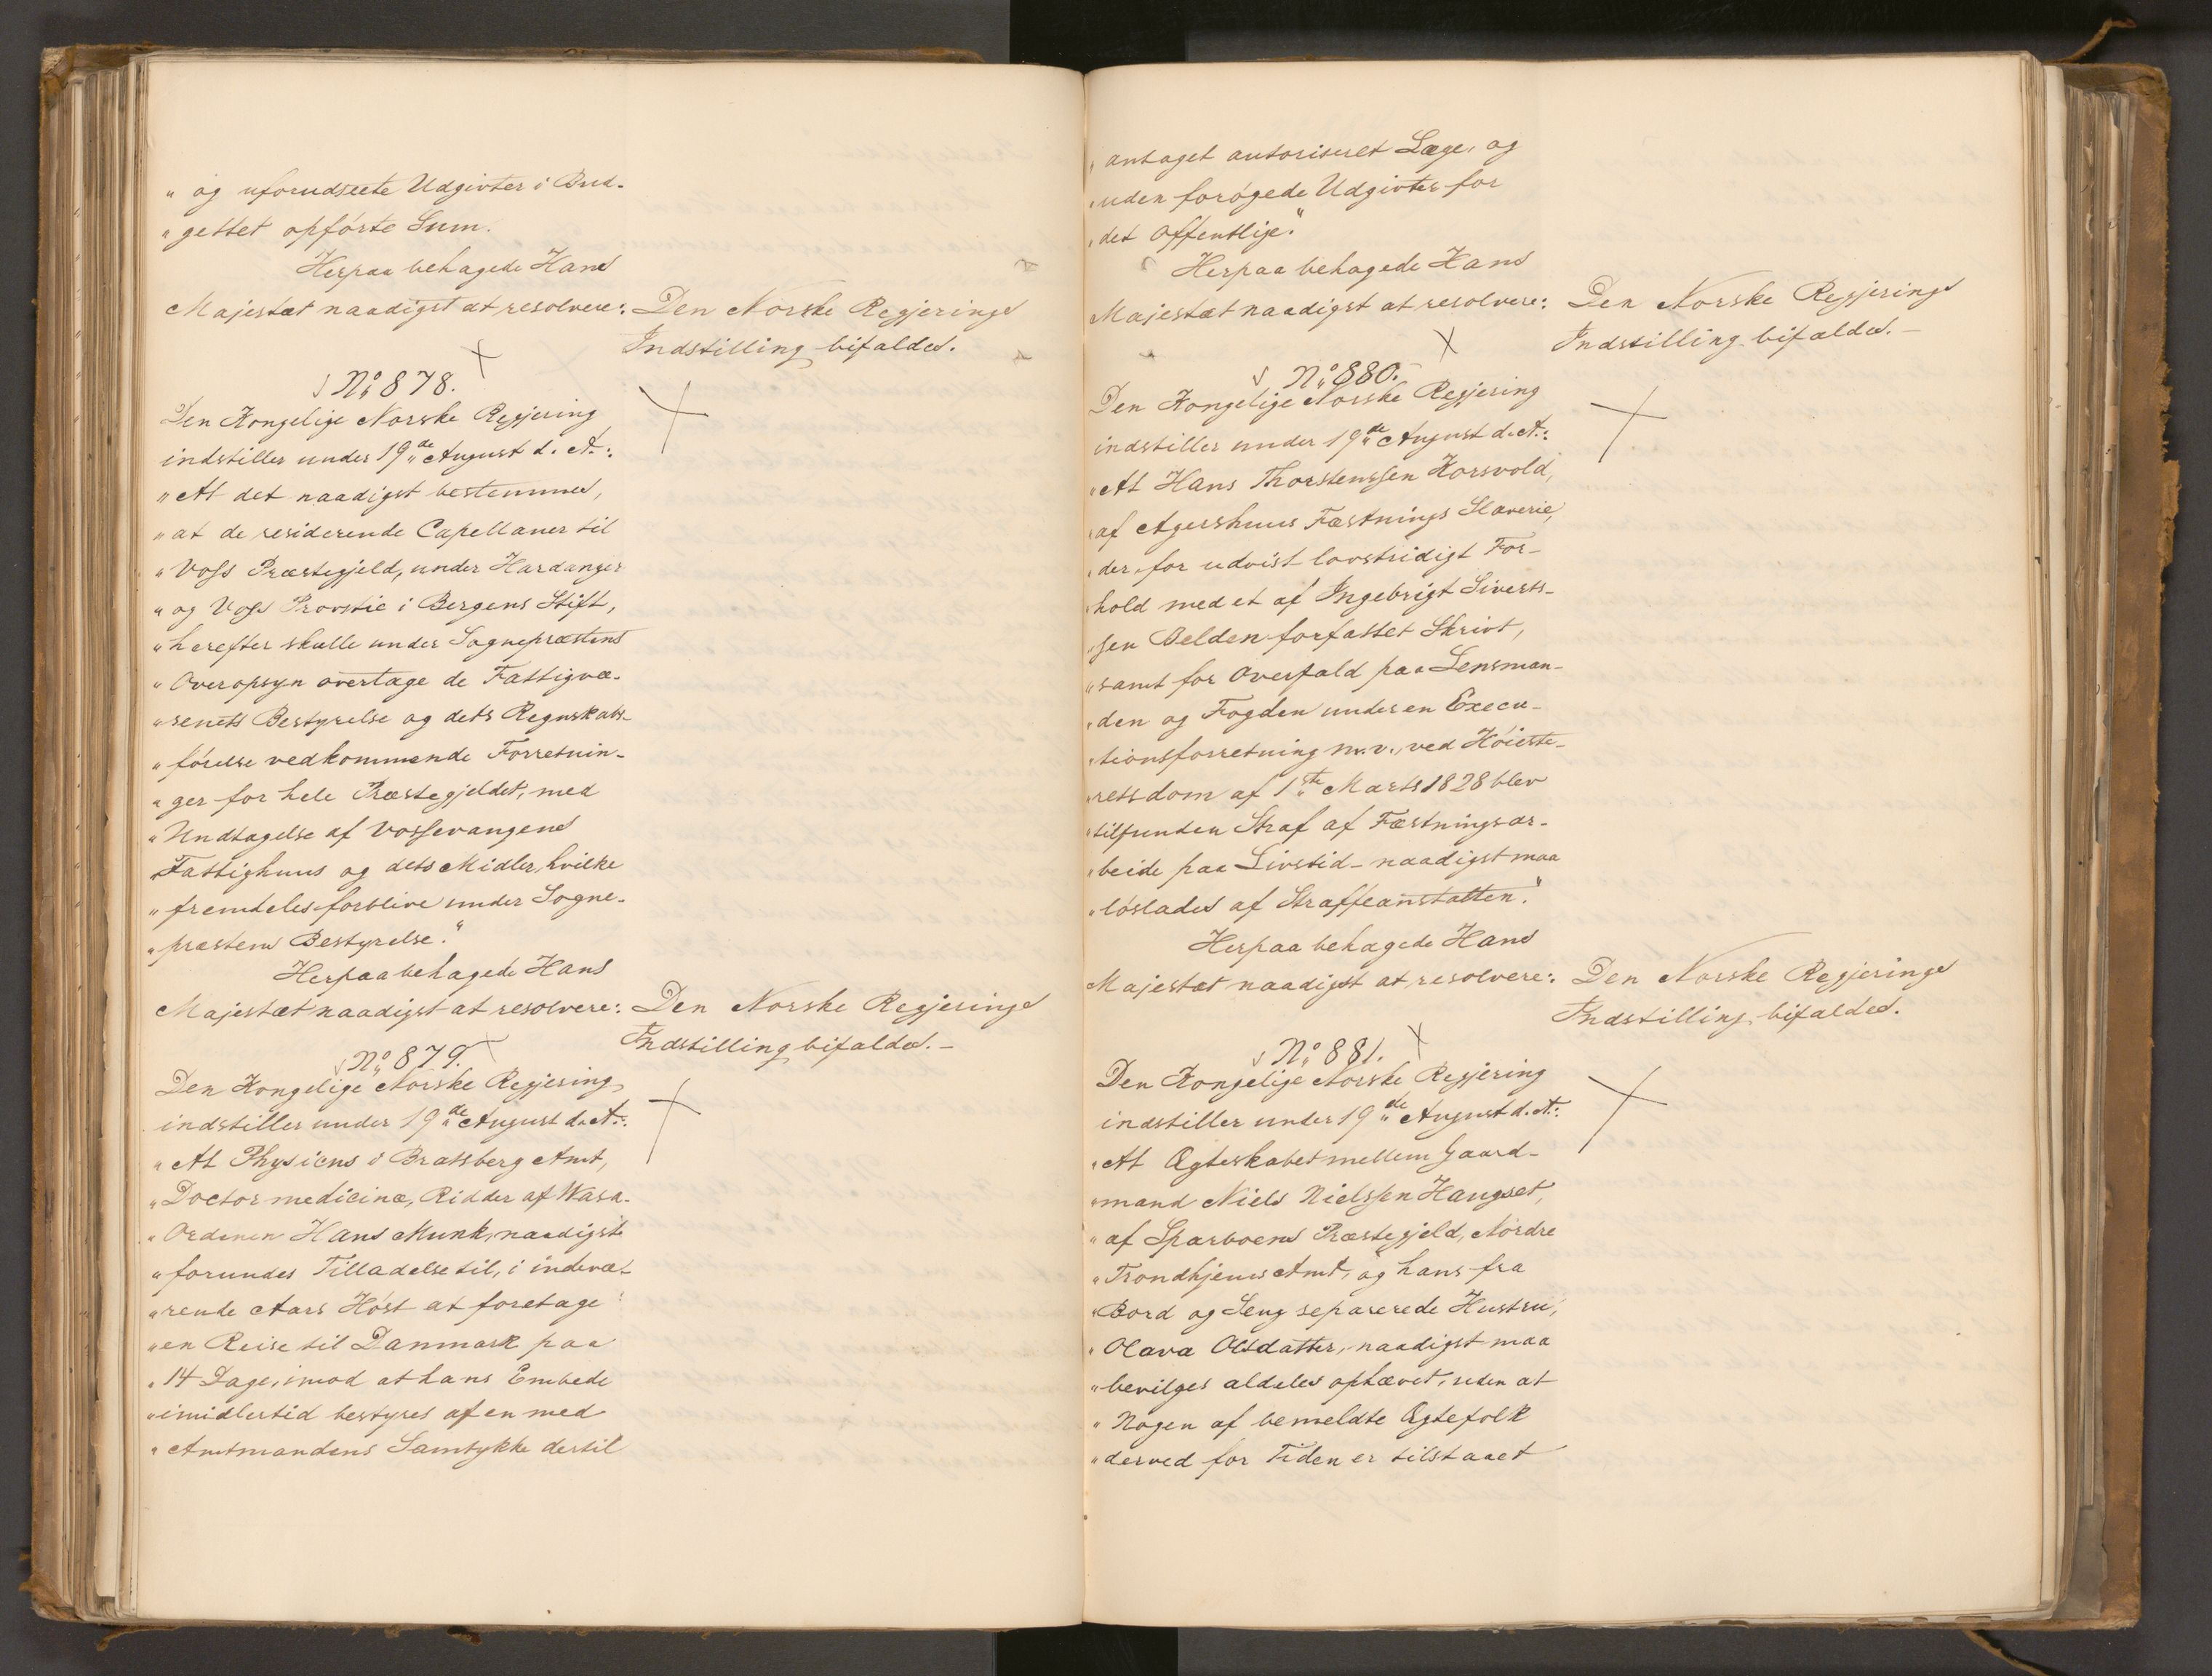 " og uforudseete Udgivter i Bud-
" gettet opförte Sum.
Herpaa behagede Hans
Majestæt naadigst at resolvere: Den Norske Regjerings
Indstilling bifaldes.
No 878.
Den Kongelige Norske Regjering
indstiller under 19de August d. A.:
" At det naadigst bestemmes,
" at de residerende Capellaner til
" Voss Præstegjeld, under Hardanger
" og Voss Provstie i Bergens Stift,
" herefter skulle under Sognepræstens
" Overopsyn overtage de Fattigvæ-
" senets Bestyrelse og dets Regnskabs-
" förelse vedkommende Forretnin-
" ger for hele Præstegjeldet, med
" Undtagelse af Vossevangens
" Fattighuus og dets Midler, hvilke
" fremdeles forblive under Sogne-
" præstens Bestyrelse."
Herpaa behagede Hans
Majestæt naadigst at resolvere: Den Norske Regjerings
Indstilling bifaldes. -
No 879.
Den Kongelige Norske Regjering
indstiller under 19de August d. A.:
" At Physicus i Bratsberg Amt,
" Doctor medicinæ, Ridder af Wasa-
" Ordenen Hans Munk, naadigst
" forundes Tilladelse til, i indevæ-
" rende Aars Höst at foretage
" en Reise til Danmark paa
" 14 Dage, imod at hans Embede
" imidlertid bestyres af en med
" Amtmandens Samtykke dertil
" antaget autoriseret Læge, og
" uden forögede Udgivter for
" det Offentlige."
Herpaa behagede Hans
Majestæt naadigst at resolvere: Den Norske Regjerings
Indstilling bifaldes. -
No 880.
Den Kongelige Norske Regjering
indstiller under 19de August d. A.:
" At Hans Thorstenssen Korsvold,
" af Agershuus Fæstnings Slaverie,
" der, for udvist lovstridigt For-
" hold med et af Ingebrigt Siverts-
" sen Belden forfattet Skrivt,
" samt for Overfald paa Lensman-
" den og Fogden under en Execu-
" tionsforretning m. v., ved Höieste-
" retsdom af 1ste Marts 1828 blev
" tilfunden Straf af Fæstningsar-
" beide paa Livstid - naadigst maa
" löslades af Straffeanstalten."
Herpaa behagede Hans
Majestæt naadigst at resolvere: Den Norske Regjerings
Indstilling bifaldes.
No 881.
Den Kongelige Norske Regjering
indstiller under 19de August d. A.:
" At Ægteskabet mellem Gaard-
" mand Niels Nielssen Haugset,
" af Sparboens Præstegjeld, Nordre
" Trondhjems Amt, og hans fra
" Bord og Seng separerede Hustru,
" Olava Olsdatter, naadigst maa
" bevilges aldeles ophævet, uden at
" Nogen af bemeldte Ægtefolk
" derved for Tiden er tilstaaet